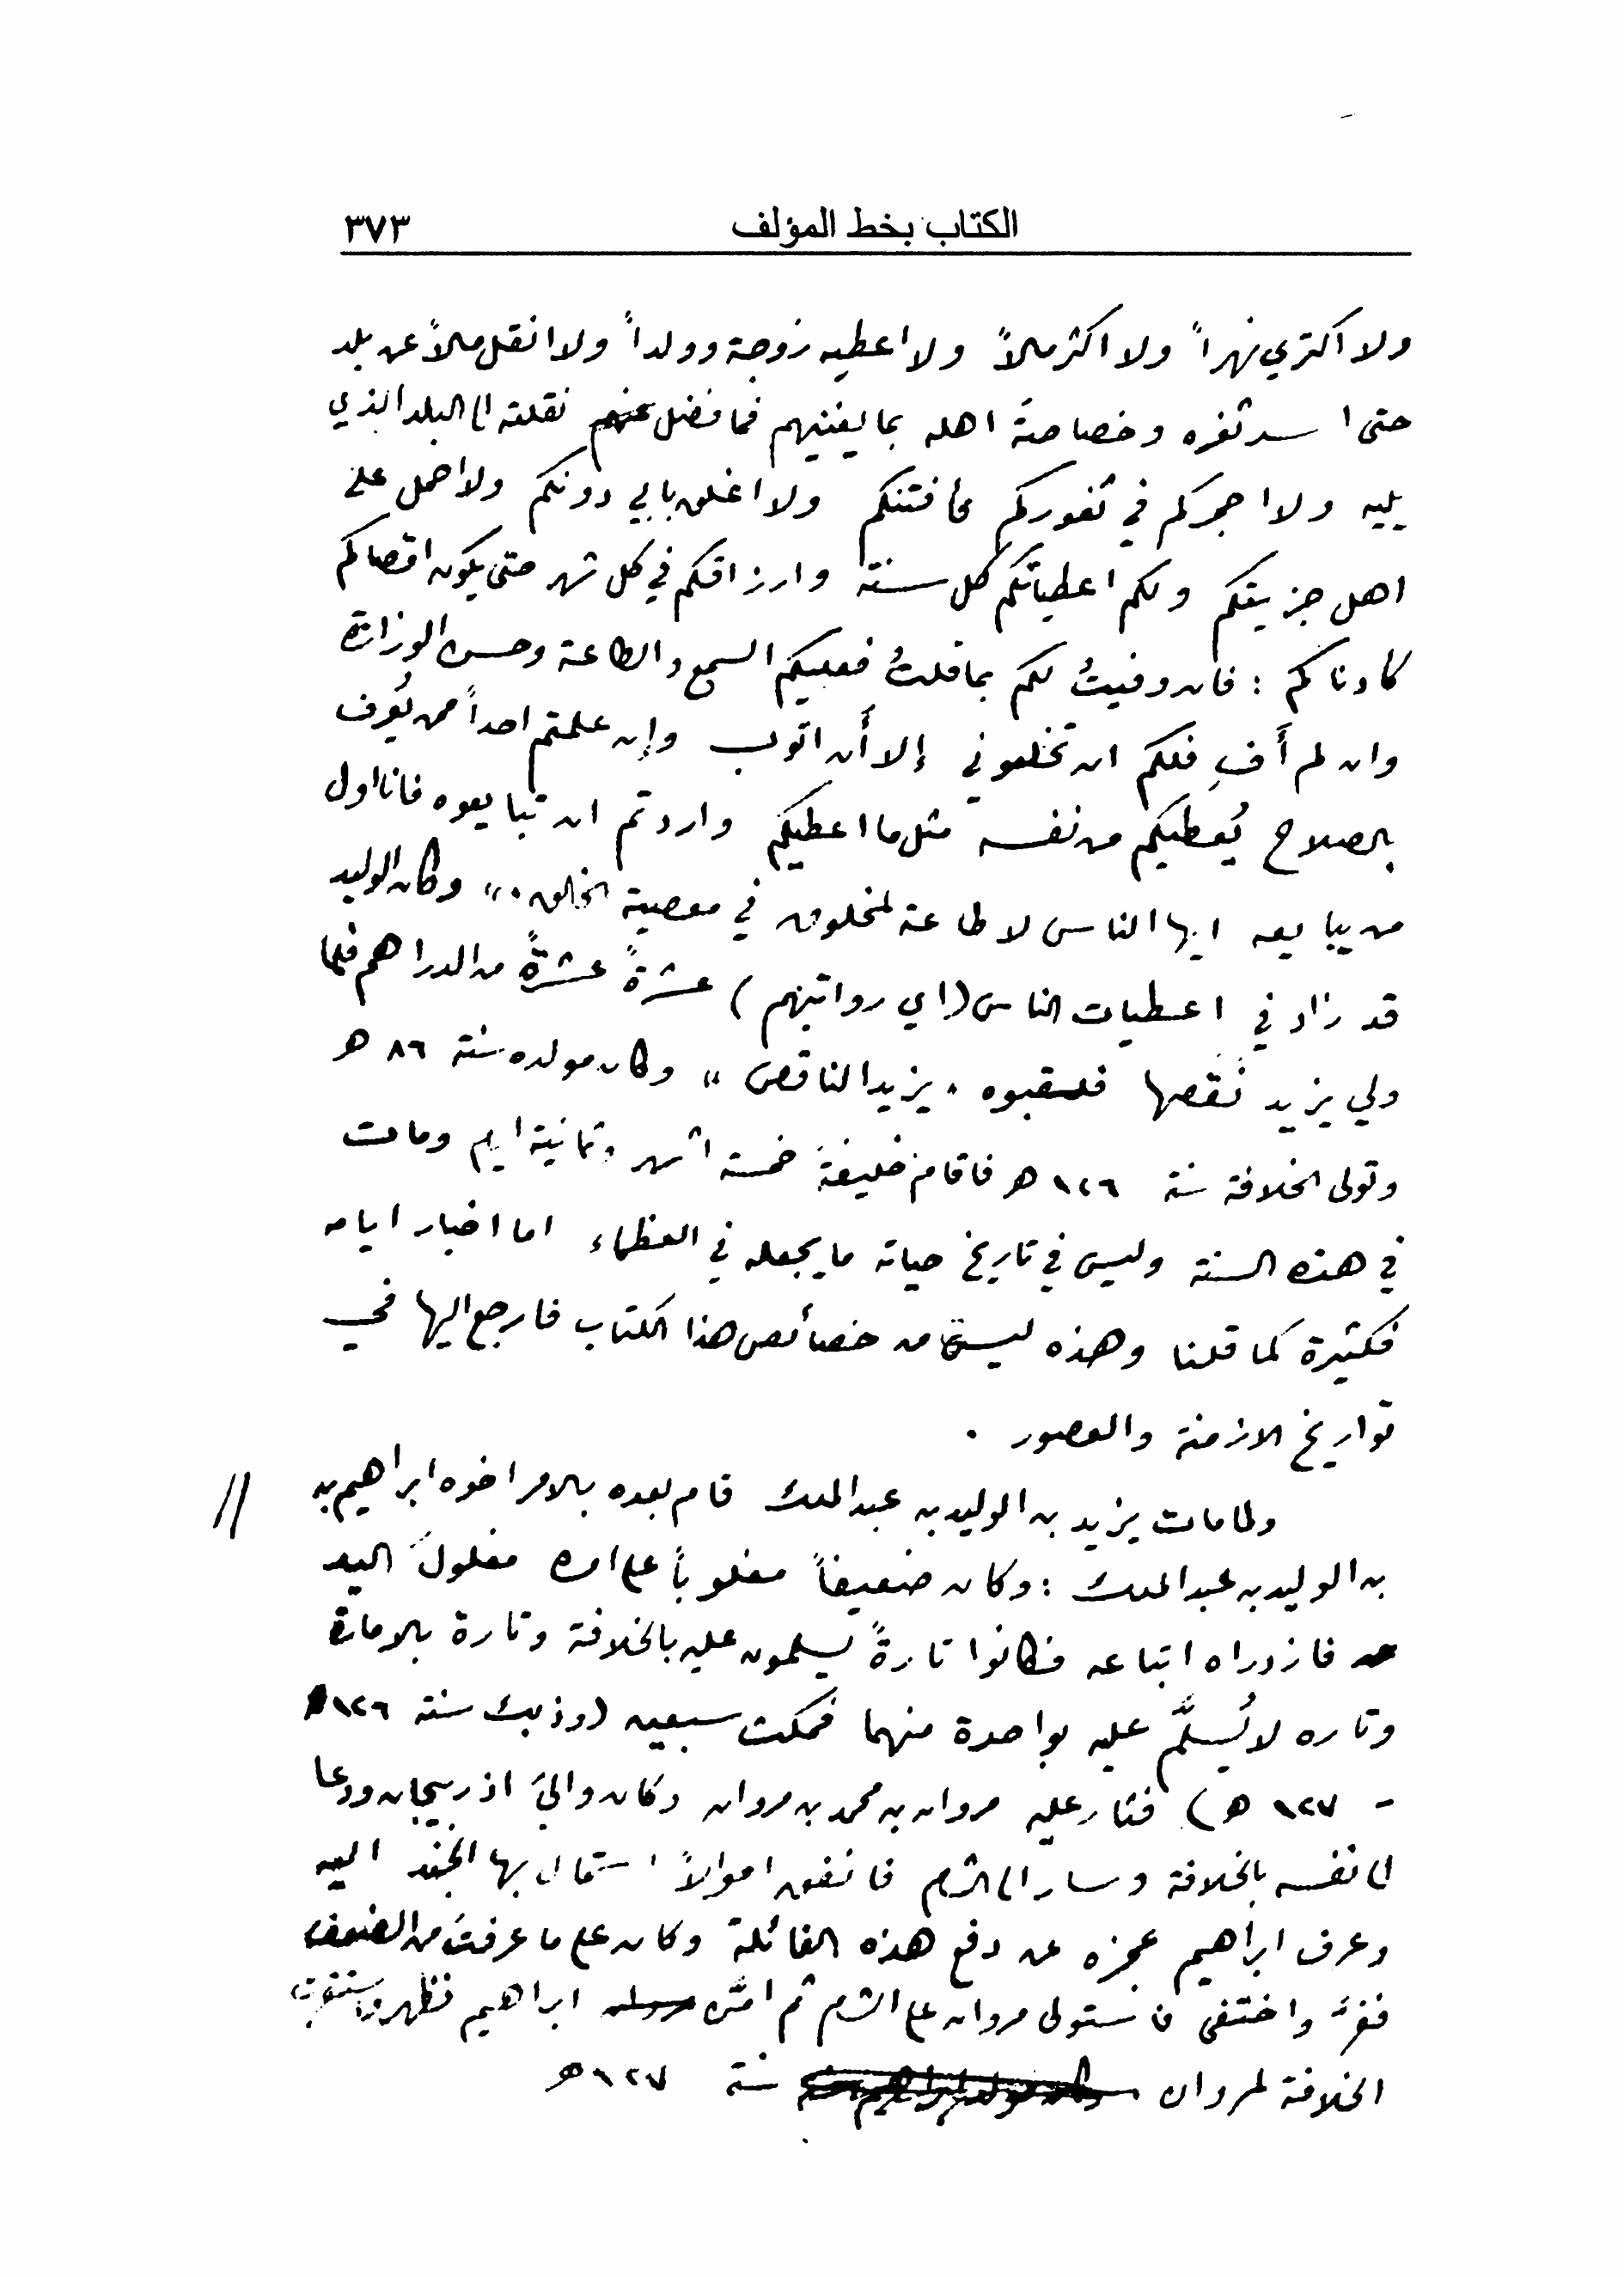 الكتاب بخط المؤلف ٣٧٣
ولا اكتري نهراً ولا اكثر مالاً ولا اعطيه زوجة وولداً ولا انقل مالاً عن بلد
حتى اسد ثغره وخصاصة اهله بما يغنيهم فما فضل عنهم نقلته الى البلد الذي
يليه ولا احجركم في ثغوركم فافتنكم ولا اغلق بابي دونكم ولا احمل على
اهل جزيتكم ولكم اعطياتكم كل سنة وارزاقكم في كل شهر حتى يكون اقصاكم
كادناكم : فان وفيتُ لكم بما قلتُ فعليكم السمع والطاعة وحسن الوزارة
وان لم أَفِ فلكم ان تخلعوني إلا أَن اتوب وإن علمتم احداً ممن يُعرف
بالصلاح يُعطيكم من نفسه مثل ما اعطيكم واردتم ان تبايعوه فانا اول
من يبايعه ايها الناس لا طاعة لمخلوق في معصية الخالق . » وكان الوليد
قد زاد في اعطيات الناس (اي رواتبهم) عشرةً عشرةً من الدراهم فلما
ولي يزيد نَقَصها فلقبوه « يزيد الناقص » وكان مولده سنة ٨٦ هـ
وتولى الخلافة سنة ١٢٦ هـ فاقام خليفةً خمسة اشهر وثمانية ايام ومات
في هذه السنة وليس في تاريخ حياته ما يجعله في العظماء اما اخبار ايامه
فكثيرة كما قلنا وهذه ليست من خصائص هذا الكتاب فارجع اليها في
تواريخ الازمنة والعصور .
ولما مات يزيد بن الوليد بن عبد الملك قام بعده بالامر اخوه ابراهيم بن //
بن الوليد بن عبد الملك : وكان ضعيفاً مغلوباً على امره مغلولَ اليد
فازدراه اتباعه فكانوا تارةً يسلمون عليه بالخلافة وتارة بالامارة
وتاره لا يُسلَّم عليه بواحدة منهما فمكث سبعين (وذلك سنة ١٢٦
- ١٢٧ هـ) فثار عليه مروان بن محمد بن مروان وكان واليَ اذربيجان ودعا
الى نفسه بالخلافة وسار الى الشام فانفق اموالاً استمال بها الجند اليه
وعرف ابراهيم عجزه عن دفع هذه الغائلة وكان على ما عرفتَ من الضعف
ففرَّ واختفى فاستولى مروان على الشام ثم امَّن ابراهيم فظهر واستقرت
الخلافة لمروان سنة ١٢٧ هـ